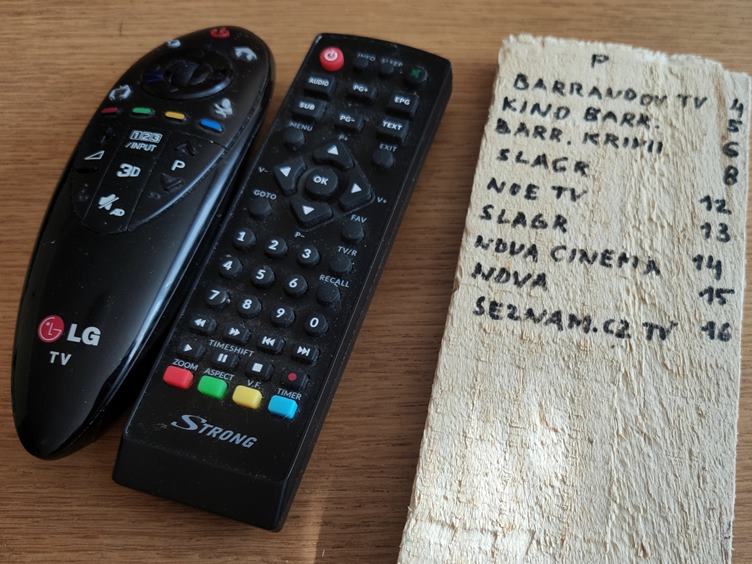 1 2 3
/INPUT
P
3D
LG
TV
INFO SLEEP
AUDIO PG+ EPG
SUB PG- TEXT
MENU P+ EXIT
V- OK V+
GOTO FAV
P-
1 2 3 TV/R
4 5 6 RECALL
7 8 9 0
TIMESHIFT
ZOOM ASPECT V.F. TIMER
STRONG
P
BARRANDOV TV 4
KINO BARR. 5
BARR. KRIMI 6
SLAGR 8
NOE TV 12
SLAGR 13
NOVA CINEMA 14
NOVA 15
SEZNAM.CZ TV 16